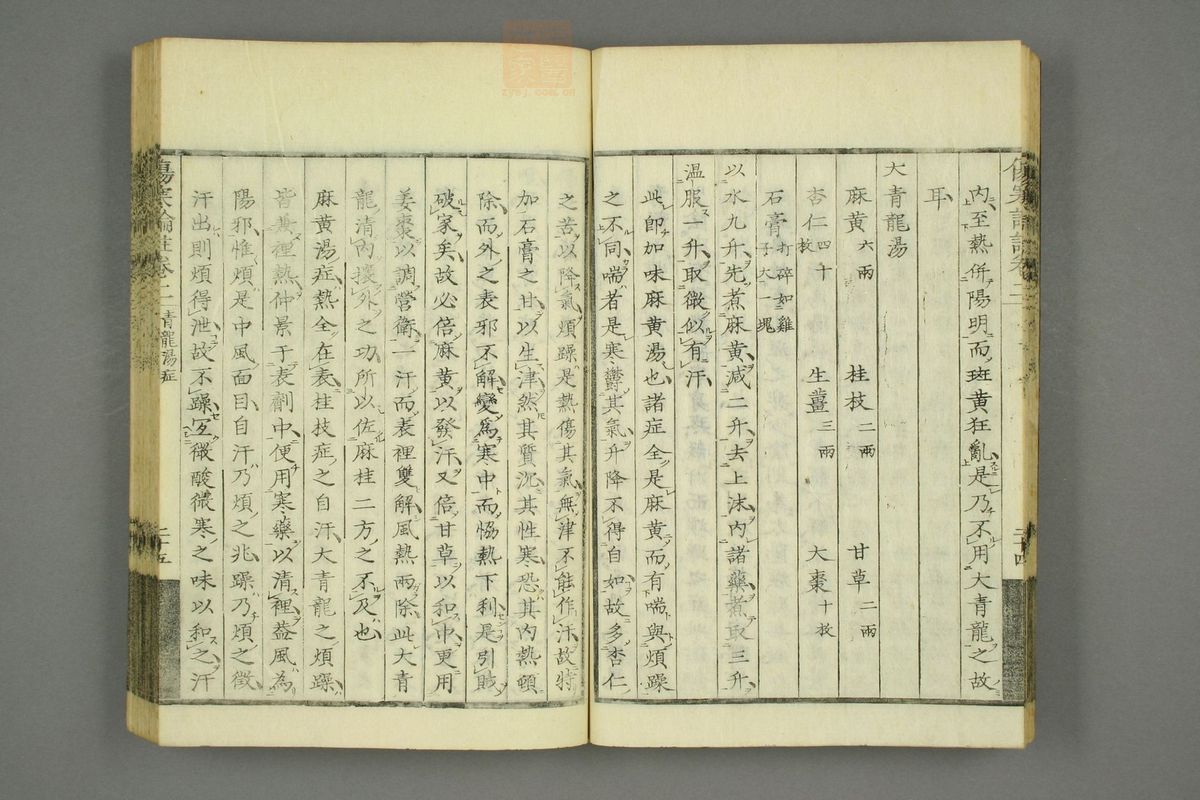 內至熱併陽明而斑黃狂亂是乃不用大青龍之故
耳
大青龍湯
麻黃六兩 桂枝二兩 甘草二兩
杏仁四十枚 生薑三兩 大棗十枚
石膏打碎如雞子大一塊
以水九升先煮麻黃減二升去上沫內諸藥煮取三升
溫服一升取微似有汗
此即加味麻黃湯也諸症全是麻黃而有喘與煩躁
之不同喘者是寒鬱其氣升降不得自如故多杏仁
之苦以降氣煩躁是熱傷其氣無津不能作汗故特
加石膏之甘以生津然其質沉其性寒恐其內熱頓
除而外之表邪不解變為寒中而恊熱下利是引賊
破家矣故必倍麻黃以發汗又倍甘草以和中更用
姜棗以調營衛一汗而表裡雙解風熱兩除此大青
龍清內攘外之功所以佐麻桂二方之不及也
麻黃湯症熱全在表桂枝症之自汗大青龍之煩躁
皆兼裡熱仲景于表劑中便用寒藥以清裡葢風為
陽邪惟煩是中風面目自汗乃煩之兆躁乃煩之徵
汗出則煩得泄故不躁宜微酸微寒之味以和之汗
傷寒論註卷二 青龍湯症 二十五